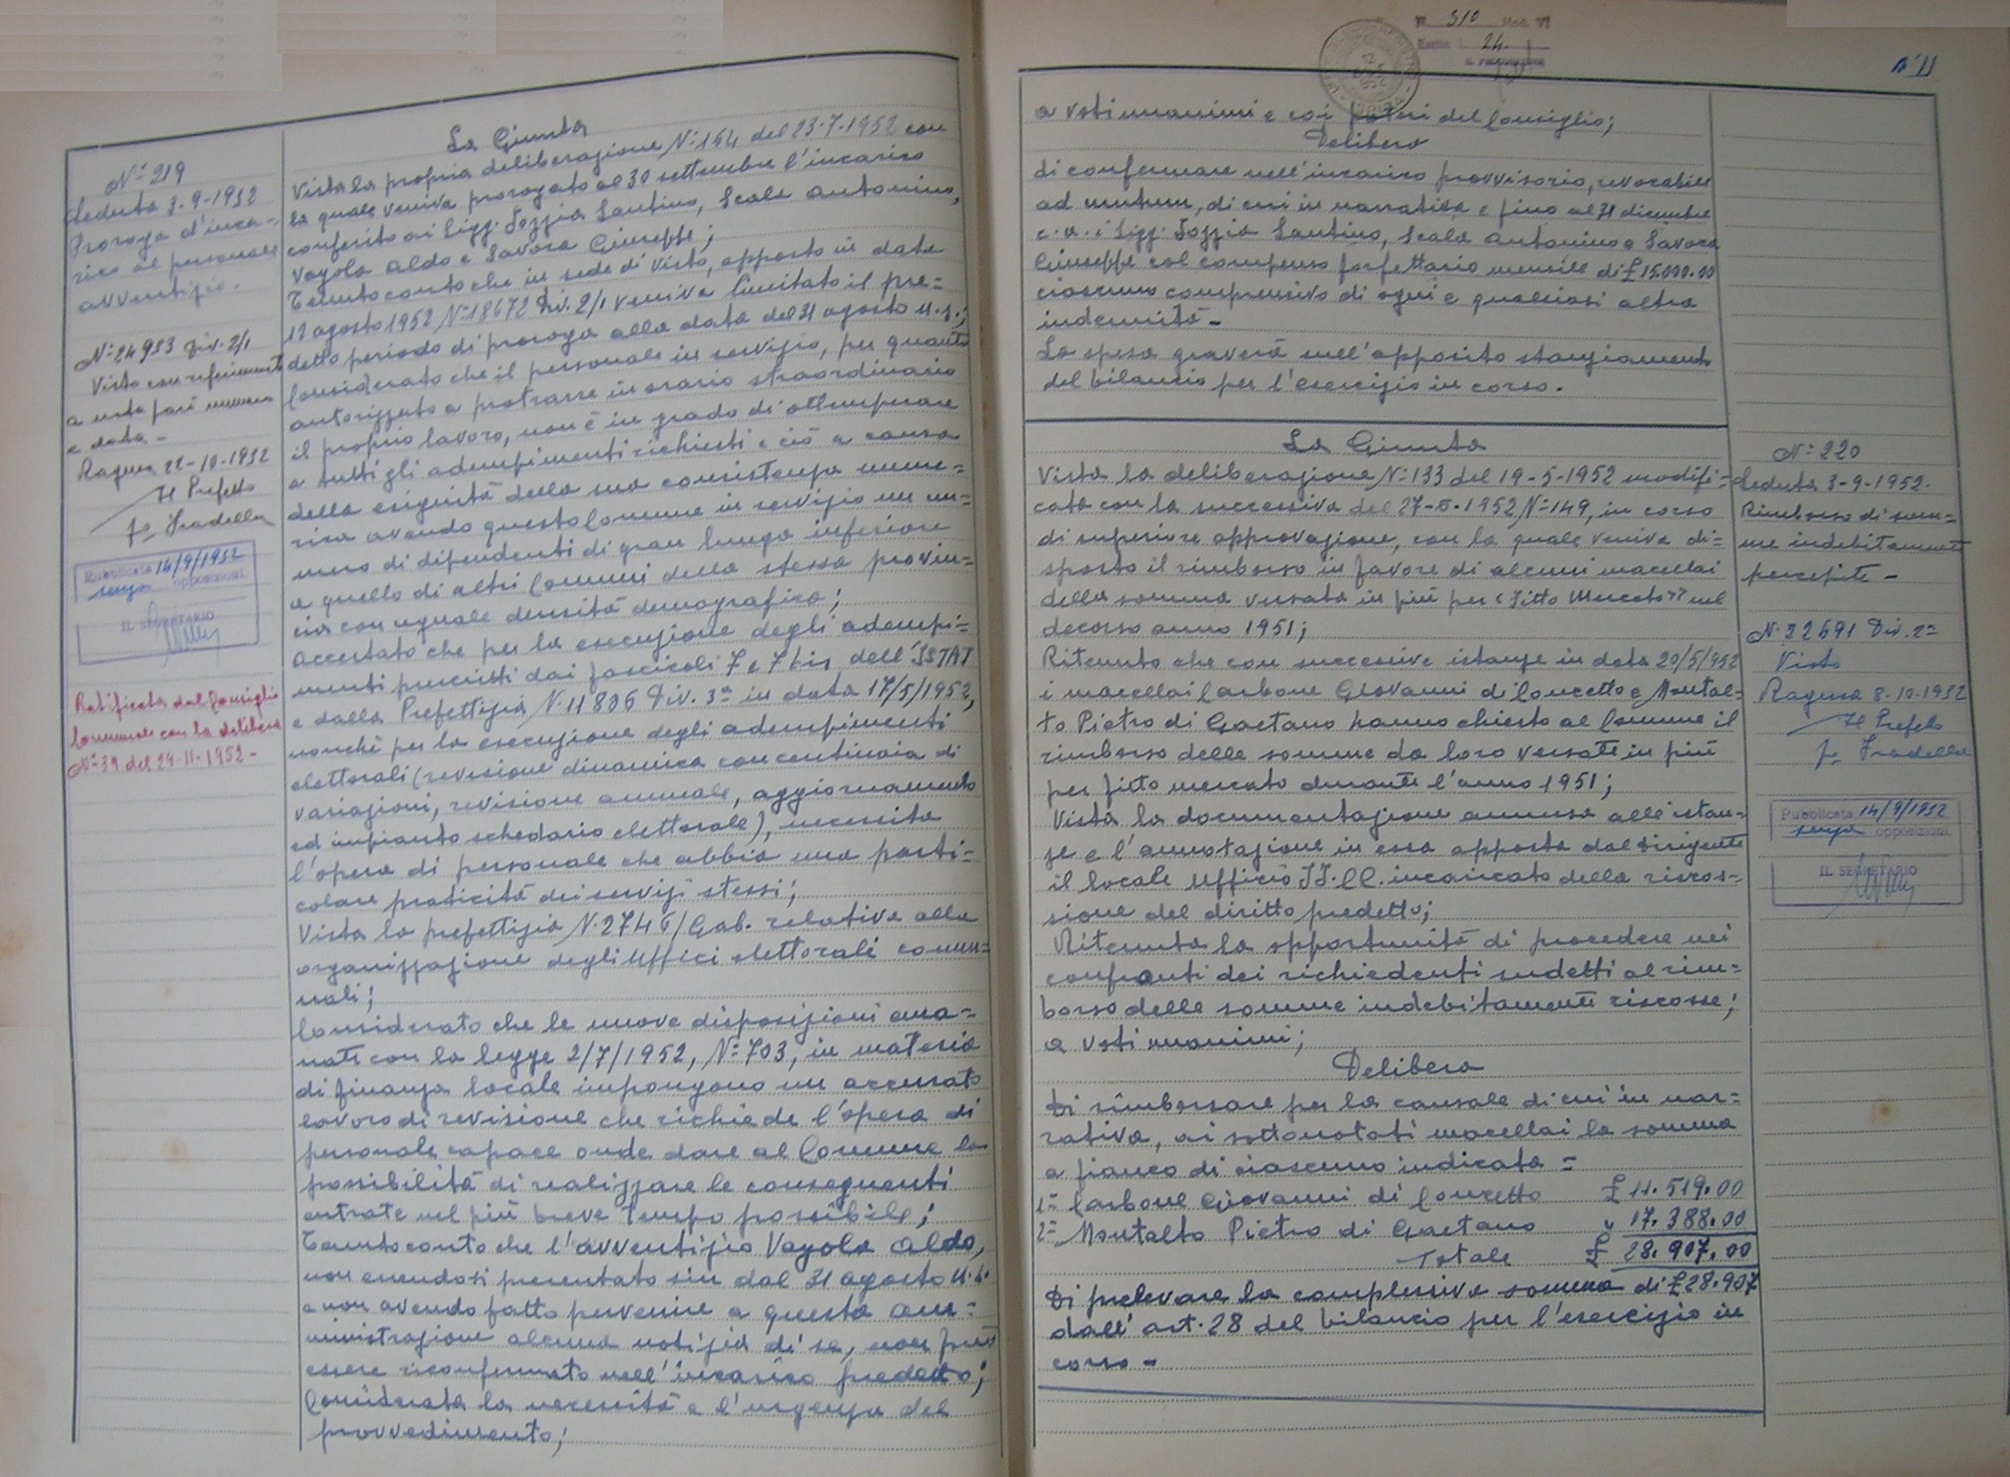 N° 219
Seduta 3-9-1952
Proroga d'inca-
rico al personale
avventizio.
N° 24933 Div. 2/1
Visto con riferimento
a nota pari numero
e data -
Ragusa 22-10-1952
Il Prefetto
f° Fradella
Pubblicata 14/9/1952
senza opposizioni
IL SEGRETARIO
Ratificata dal Consiglio
Comunale con la delibera
N° 39 del 29-11-1952 -
La Giunta
Vista la propria deliberazione N° 154 del 23-7-1952 con
la quale veniva prorogato al 30 settembre l'incarico
conferito ai Sigg. Sozzia Santino, Scala Antonino,
Vayola Aldo e Savoca Giuseppe;
Tenuto conto che in sede di visto, apposto in data
12 agosto 1952 N° 18672 Div. 2/1 veniva limitato il pre=
detto periodo di proroga alla data del 31 agosto u.s.;
Considerato che il personale in servizio, per quanto
autorizzato a protrarre in orario straordinario
il proprio lavoro, non è in grado di ottemperare
a tutti gli adempimenti richiesti e ciò a causa
della esiguità della sua consistenza nume=
rica avendo questo Comune in servizio un nu=
mero di dipendenti di gran lunga inferiore
a quello di altri Comuni della stessa provin=
cia con uguale densità demografica;
Accertato che per la esecuzione degli adempi=
menti prescritti dai fascicoli 7 e 7 bis dell'ISTAT
e dalla Prefettizia N. 11806 Div. 3ª in data 17/5/1952,
nonchè per la esecuzione degli adempimenti
elettorali (revisione dinamica con centinaia di
variazioni, revisione annuale, aggiornamento
ed impianto schedario elettorale), necessita
l'opera di personale che abbia una parti=
colare praticità dei servizi stessi;
Vista la prefettizia N. 2746/Gab. relativa alla
organizzazione degli Uffici elettorali comu=
nali;
Considerato che le nuove disposizioni ema=
nate con la legge 2/7/1952, N° 703, in materia
di finanza locale impongono un accurato
lavoro di revisione che richiede l'opera di
personale capace onde dare al Comune la
possibilità di realizzare le conseguenti
entrate nel più breve tempo possibile;
Tenuto conto che l'avventizio Vayola Aldo,
non essendosi presentato sin dal 31 agosto u.s.
e non avendo fatto pervenire a questa am=
ministrazione alcuna notizia di se, non può
essere riconfermato nell'incarico predetto;
Considerata la necessità e l'urgenza del
provvedimento;
N. 310 Mod. VI
24.
n° 11
a voti unanimi e coi poteri del Consiglio;
Delibera
di confermare nell'incarico provvisorio, revocabile
ad nutum, di cui in narrativa e fino al 31 dicembre
c.a. i Sigg. Sozzia Santino, Scala Antonino e Savoca
Giuseppe col compenso forfettario mensile di £ 15.000.00
ciascuno comprensivo di ogni e qualsiasi altra
indennità -
La spesa graverà sull'apposito stanziamento
del bilancio per l'esercizio in corso.
La Giunta
Vista la deliberazione N° 133 del 19-5-1952 modifi=
cata con la successiva del 27-5-1952 N° 149, in corso
di superiore approvazione, con la quale veniva di=
sposto il rimborso in favore di alcuni macellai
della somma versata in più per "Fitto Mercato" nel
decorso anno 1951;
Ritenuto che con successive istanze in data 20/5/952
i macellai Carbone Giovanni di Concetto e Montal=
to Pietro di Gaetano hanno chiesto al Comune il
rimborso delle somme da loro versate in più
per fitto mercato durante l'anno 1951;
Vista la documentazione annessa alle istan=
ze e l'annotazione in essa apposta dal dirigente
il locale Ufficio II.CC. incaricato della riscos=
sione del diritto predetto;
Ritenuta la opportunità di procedere nei
confronti dei richiedenti sudetti al rim=
borso delle somme indebitamente riscosse;
a voti unanimi;
Delibera
Di rimborsare per la causale di cui in nar=
rativa, ai sottonotati macellai la somma
a fianco di ciascuno indicata =
1= Carbone Giovanni di Concetto £ 11.519.00
2= Montalto Pietro di Gaetano " 17.388.00
Totale £ 28.907.00
Di prelevare la complessiva somma di £ 28.907
dall'art. 28 del bilancio per l'esercizio in
corso -
N° 220
Seduta 3-9-1952.
Rimborso di som=
me indebitamente
percepite -
N. 22691 Div. 2=
Visto
Ragusa 8-10-1952
Il Prefetto
f° Fradella
Pubblicata 14/9/1952
senza opposizioni
IL SEGRETARIO